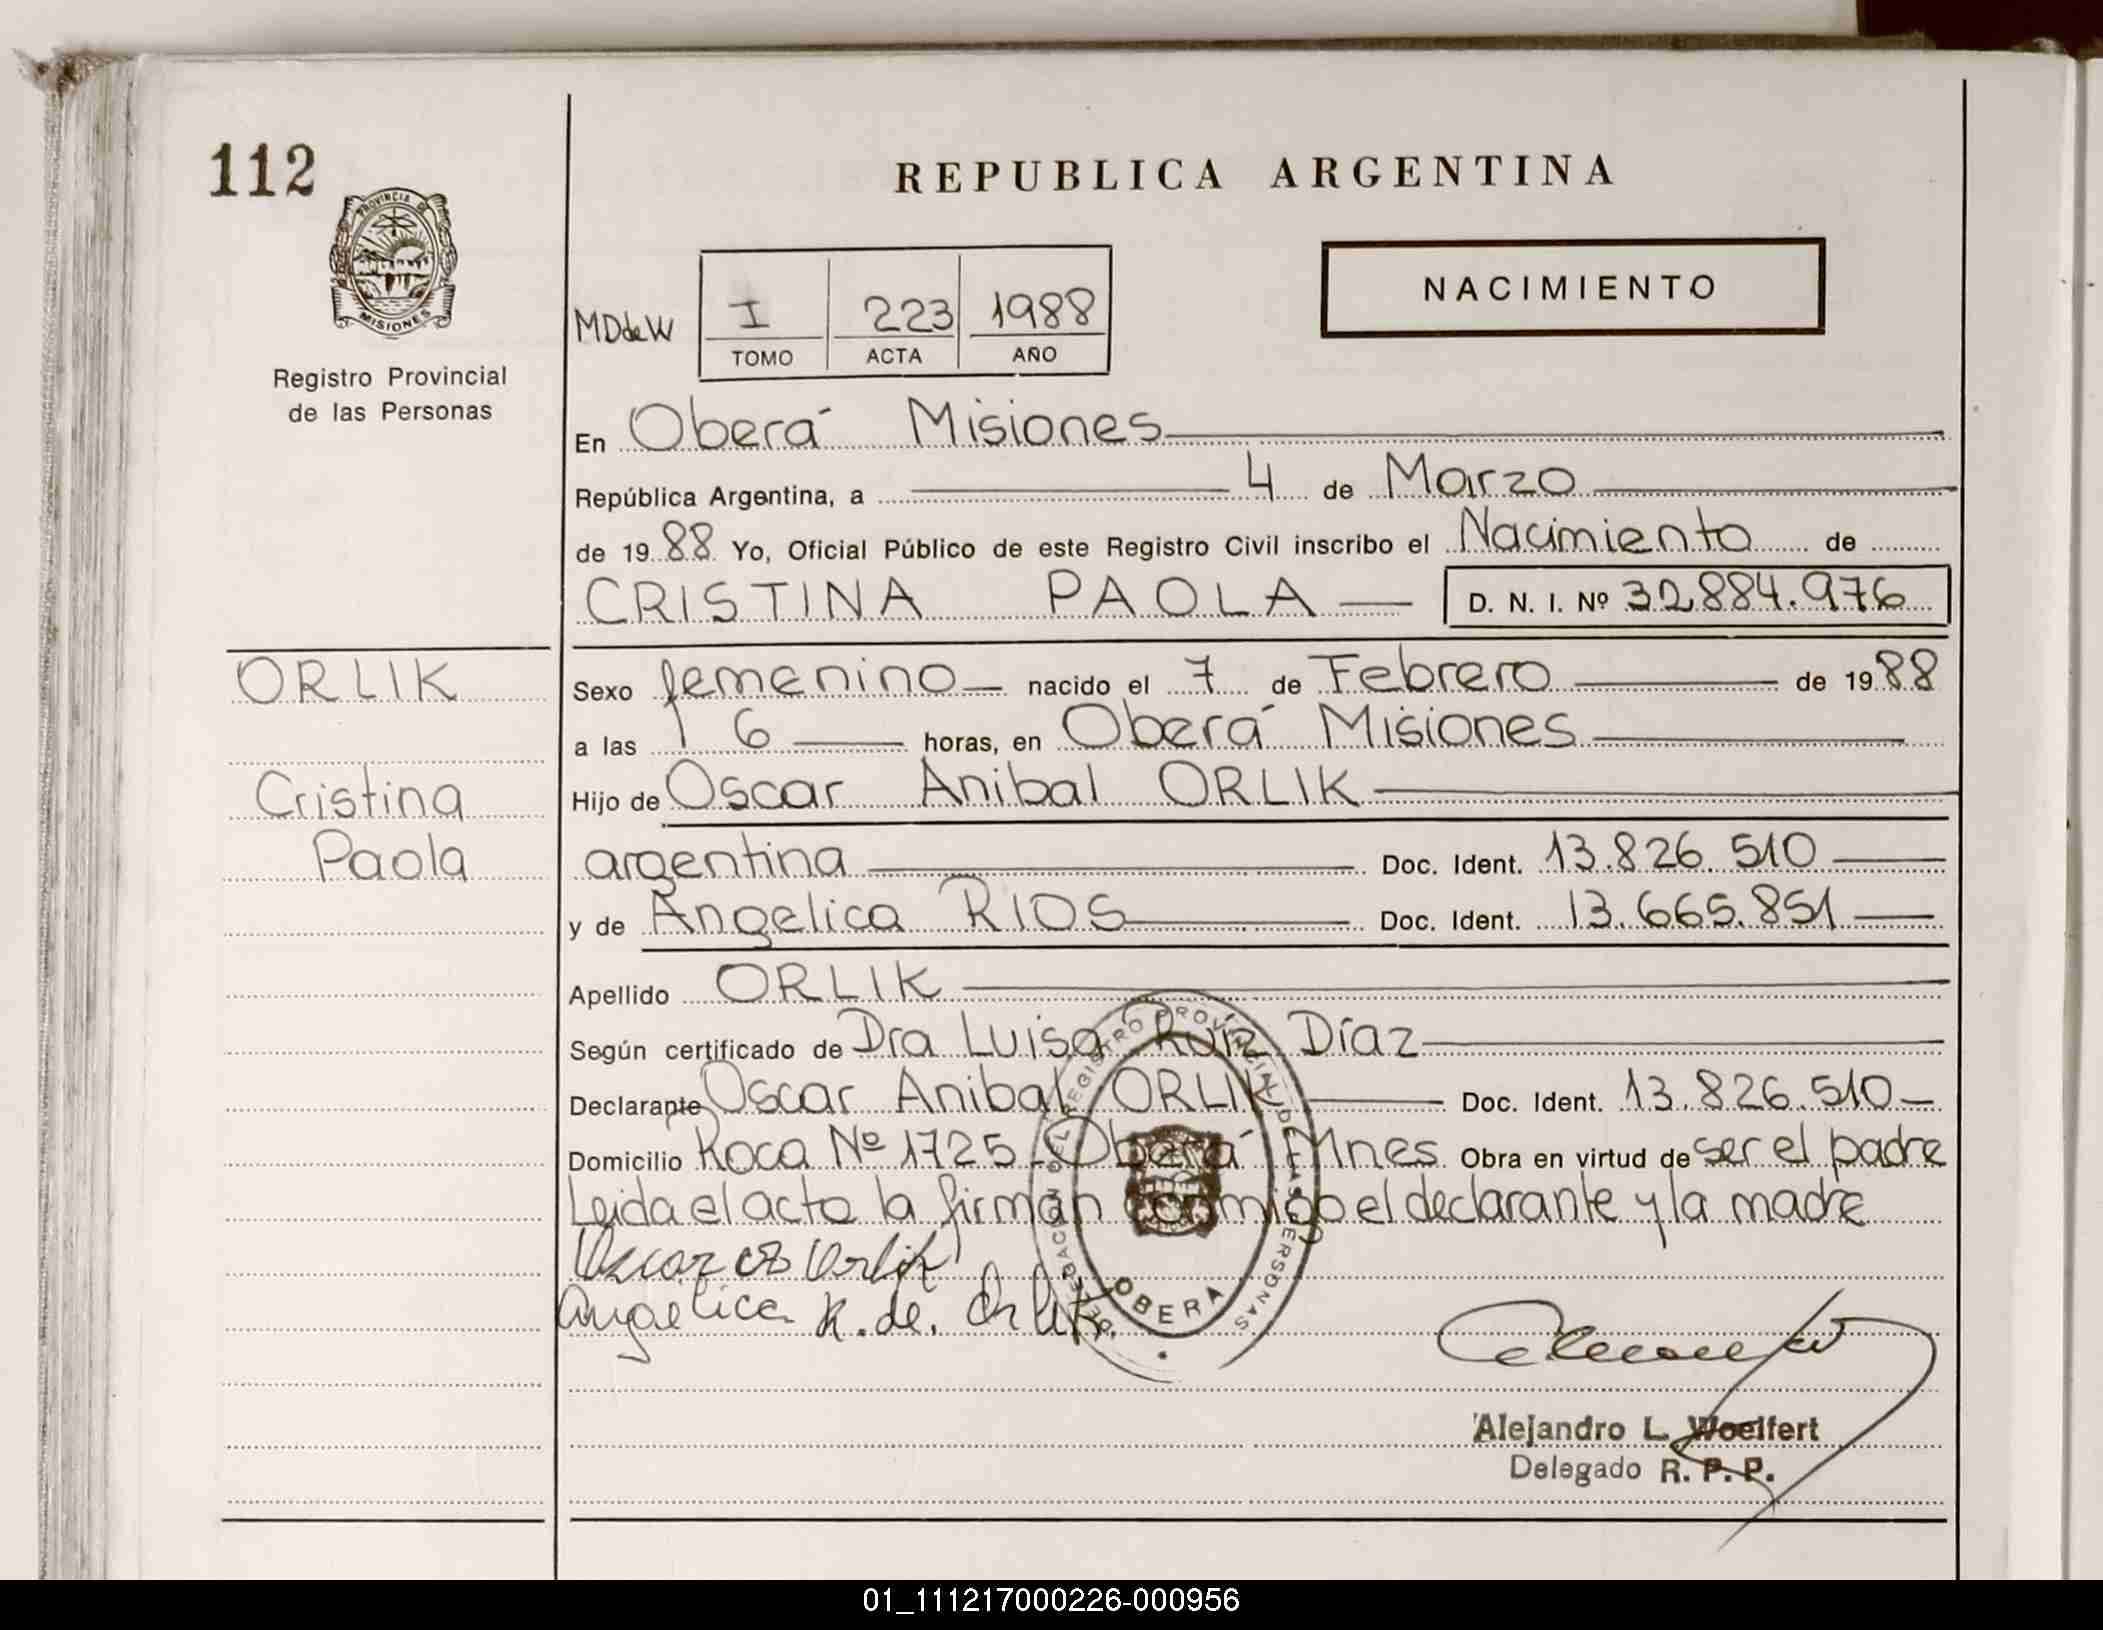 112
REPUBLICA ARGENTINA
PROVINCIA DE
MISIONES
Registro Provincial
de las Personas
MDdeW
I 223 1988
TOMO ACTA AÑO
NACIMIENTO
En Oberá Misiones
República Argentina, a 4 de Marzo
de 1988 Yo, Oficial Público de este Registro Civil inscribo el Nacimiento de
CRISTINA PAOLA D. N. I. Nº 32.884.976
ORLIK
Cristina
Paola
Sexo femenino nacido el 7 de Febrero de 1988
a las 6 horas, en Oberá Misiones
Hijo de Oscar Anibal ORLIK
argentina Doc. Ident. 13.826.510
y de Angelica RIOS Doc. Ident. 13.665.851
Apellido ORLIK
Según certificado de Dra Luisa Ruíz Díaz
Declarante Oscar Anibal ORLIK Doc. Ident. 13.826.510
Domicilio Roca Nº 1725 Oberá Mnes Obra en virtud de ser el padre
Leida el acta la firman conmigo el declarante y la madre
Oscar Orlik
Angelica R. de. Orlik
DELEGACION DEL REGISTRO PROVINCIAL DE LAS PERSONAS
OBERA
Alejandro L. Woelfert
Delegado R. P. P.
01_111217000226-000956